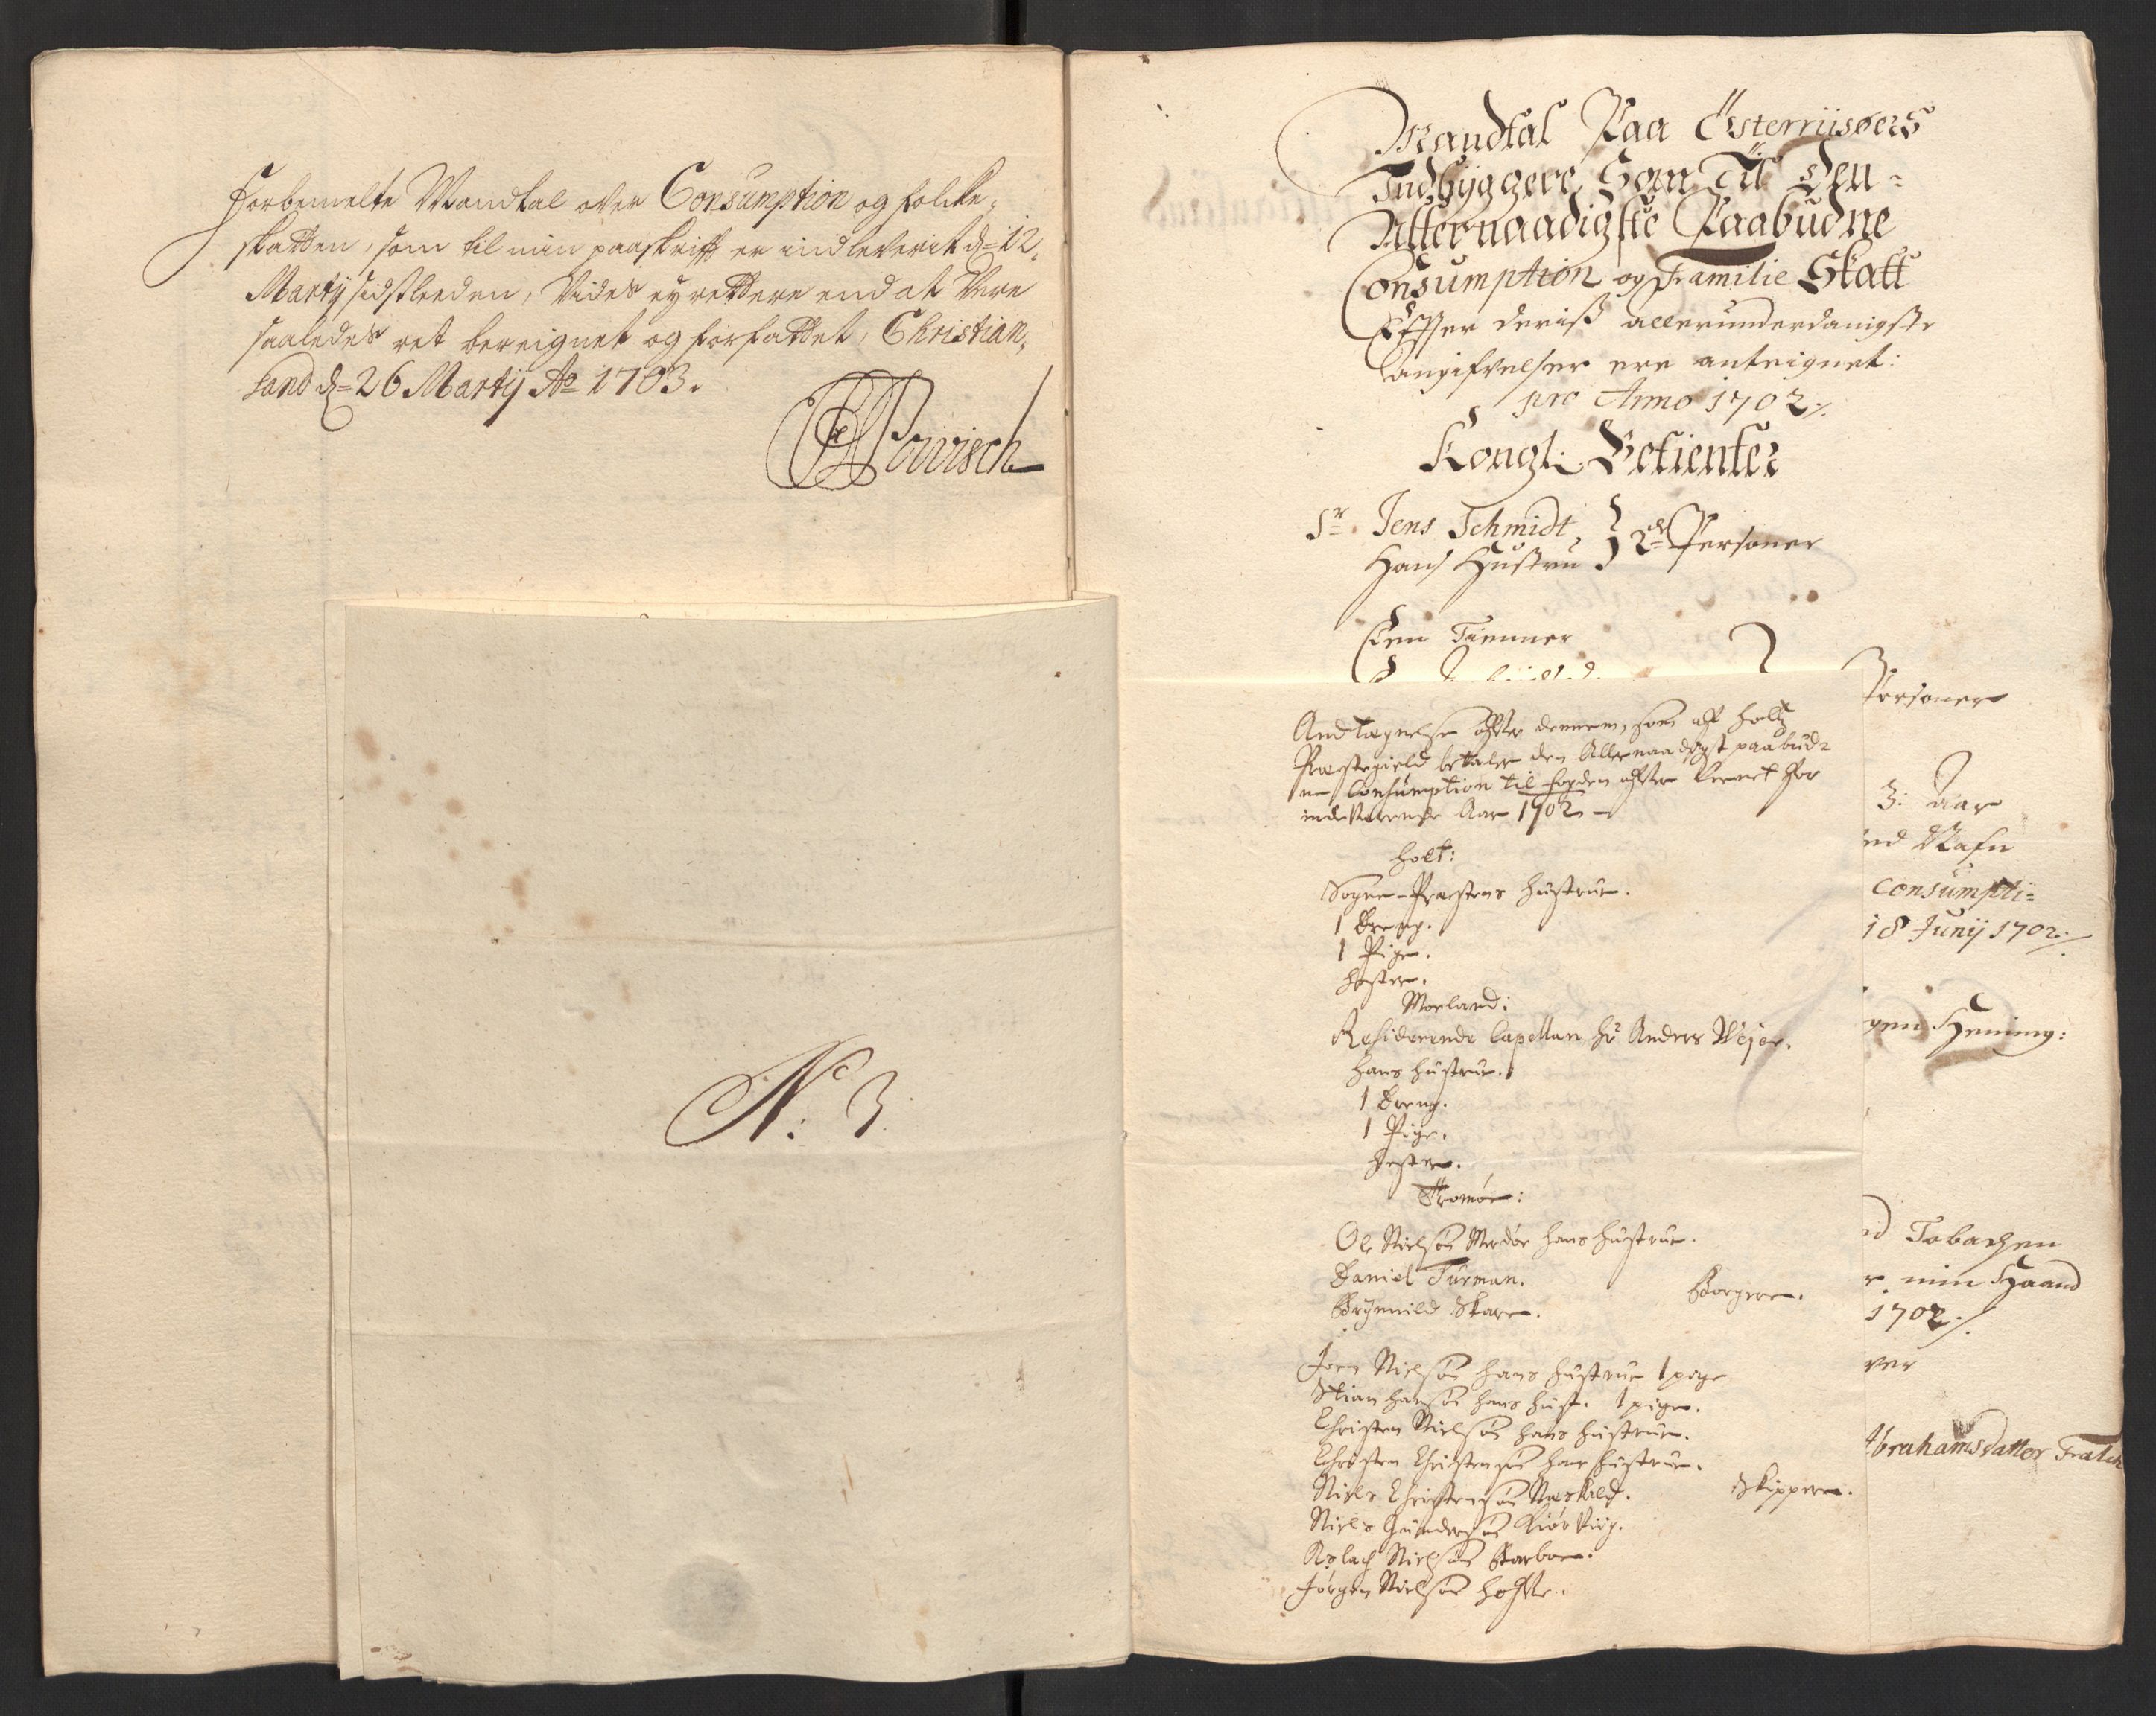 Forbemelte Mandtal over Consumption og folcke-
skatten, som til min paaskrift er indleverit d= 12
Martij sidstleeden, Vides ey rettere end at Vere
saaledes ret bereignet og forfattet, Christian-
sand d= 26 Martij Ao 1703.
N: 3
Mandtal Paa Østerriisøers
Indbyggere, Som Til Den
Allernaadigste Paabudne
Consumption og Familie Skatt
Effter deriß allerunderdanigste
angifvelser ere anteignet:
pro Anno 1702 ./.
Kongl: Betienter
Sr Jens Schmidt
Hans Hustru } 2de Personer
Een Tienner
Personer
3: Aar
consumpti=
18 Junij 1702 ./.
Hening:
Tobachen
min Haand
1702 ./.
Abrahamsdatter
Andtegnelse offver dennem, som aff Holtz
Præstegield betaler den Allernaadigst paabud-
ne Consumption til fogden effter Cornet for
indeverende Aar 1702
Holt:
Sogne-Præstens Hustrue.
1 Dreng.
1 Pige.
Morland:
Residerende Capellan Hr Anders Wejer.
Hans Hustrue.
1 Dreng.
1 Pige.
Tromøe:
Ole Nielsøn Merdøe hans Hustrue.
Daniel Turman.
Brynnild Skare.
Borgere.
Joen Nielsøn hans Hustrue 1 pige
Stian Hansøn hans Hust. 1 pige.
Christen Nielsøn hans Hustrue.
Christen Christensøn hans Hustrue.
Niels Christensøn
Skippere.
Niels Gundersøn Kiørviig.
Aslach Nielsøn
Jørgen Nielsøn Hoffve.